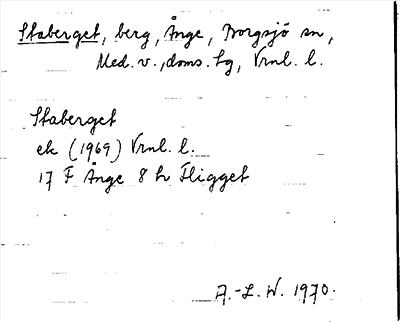 Staberget, berg, Ånge, Borgsjö sn,
Med. v., doms. tg, Vrnl. l.
Staberget
ek (1969) Vrnl. l.
17 F Ånge 8 h Fligget
A.-L. W. 1970.